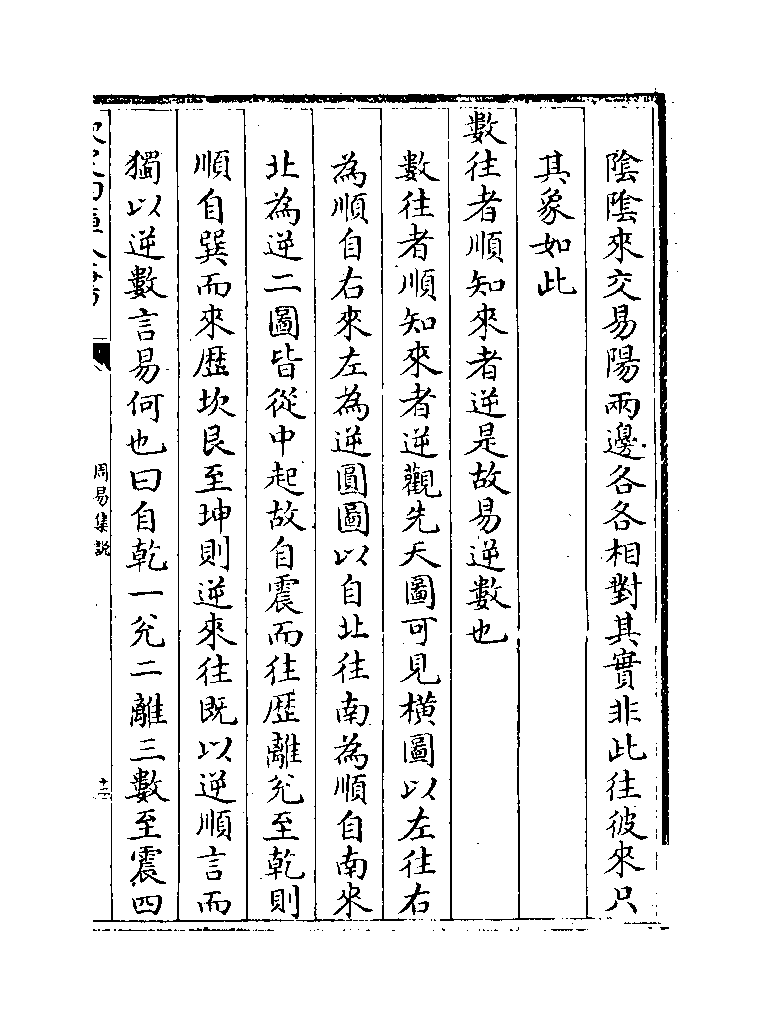 陰陰來交易陽兩邊各各相對其實非此往彼來只
其象如此
數往者順知來者逆是故易逆數也
數往者順知來者逆觀先天圖可見橫圖以左往右
為順自右來左為逆圓圖以自北往南為順自南來
北為逆二圖皆從中起故自震而往歴離兊至乾則
順自巽而來歴坎艮至坤則逆來往既以逆順言而
獨以逆數言易何也曰自乾一兊二離三數至震四
周易集說
十二